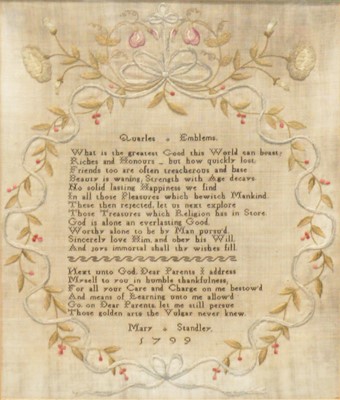 Quarles Emblems.
What is the greatest Good this World can boast;
Riches and Honours but how quickly lost,
Friends too are often treacherous and base
Beauty is waning, Strength with Age decays.
No solid lasting Happiness we find
In all those Pleasures which bewitch Mankind.
These then rejected, let us next explore
Those Treasures which Religion has in Store.
God is alone an everlasting Good.
Worthy alone to be by Man pursu'd.
Sincerely love Him, and obey his Will,
And joys immortal shall thy wishes fill.
Next unto God, Dear Parents I address
Myself to you in humble thankfulness,
For all your Care and Charge on me bestow'd
And means of Learning unto me allow'd
Go on Dear Parents, let me still pursue
Those golden arts the Vulgar never knew.
Mary Standley.
1799